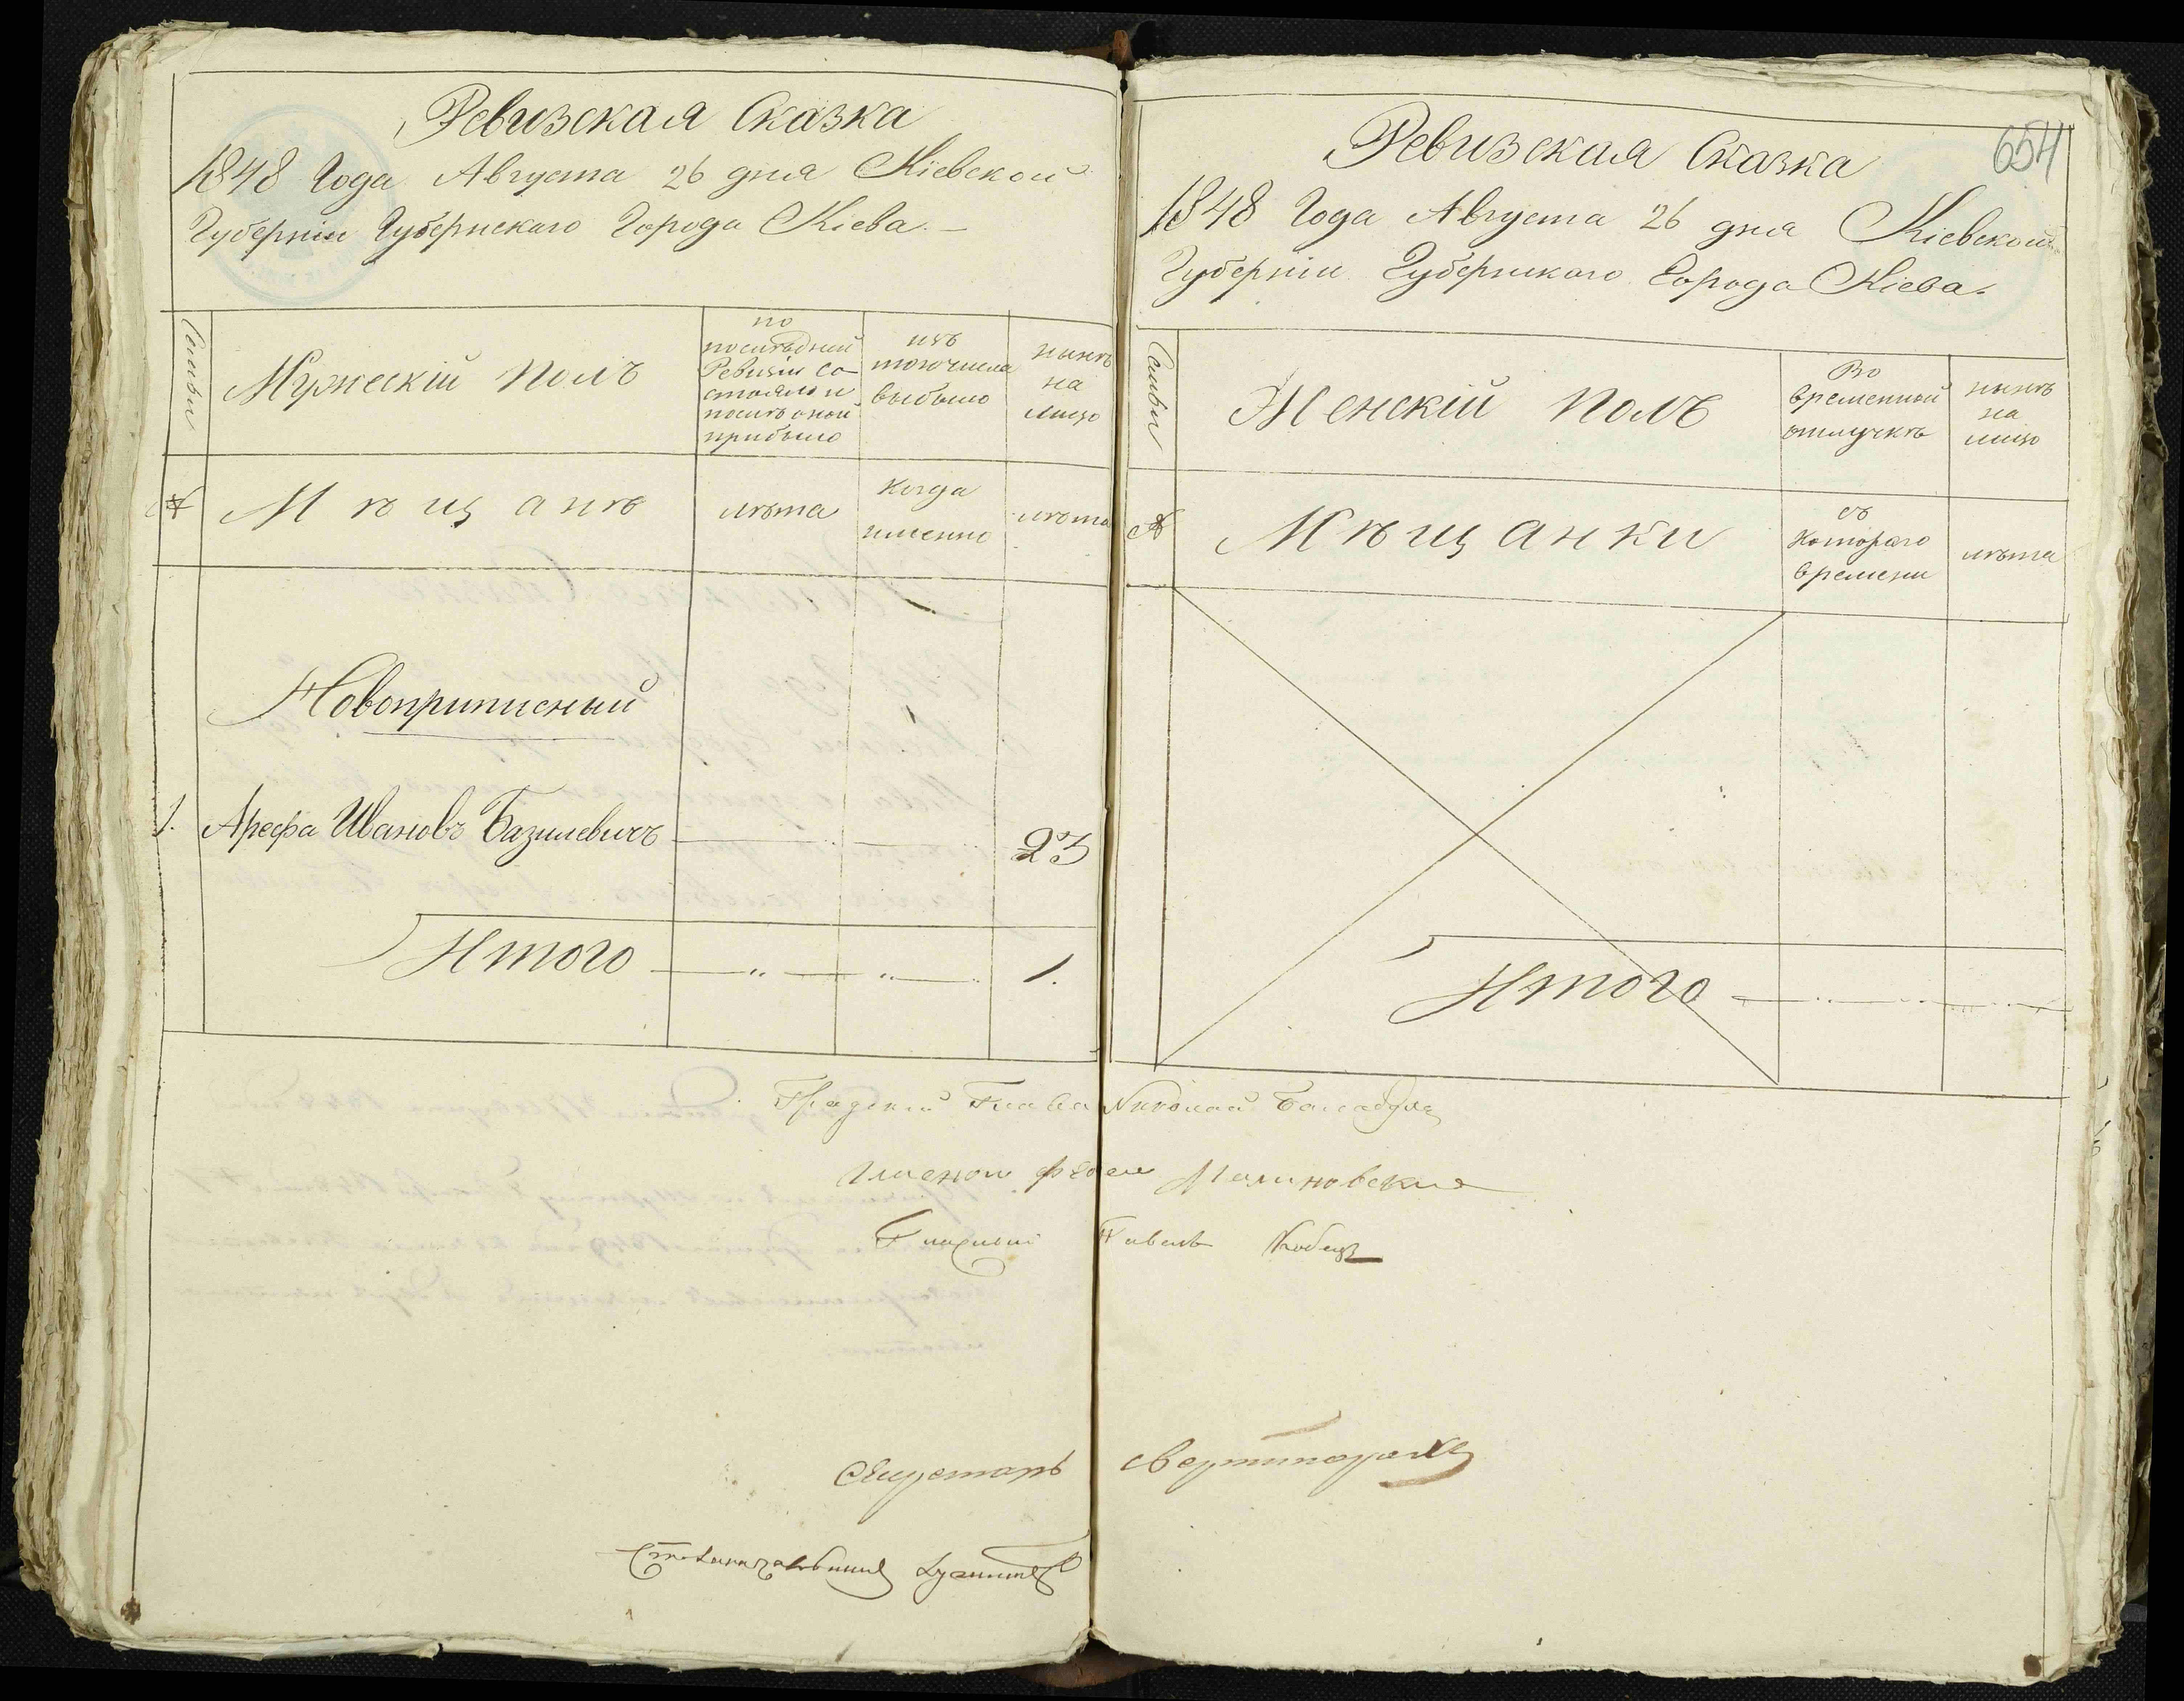 Ревизская Сказка
1848 Года Августа 26 дня Кіевской
Губерніи Губернскаго Города Кіева.
Семьи
Мужескій полъ
по
послѣдней
Ревизіи со-
стояло и
послѣ оной
прибыло
изъ
того числа
выбыло
нынѣ
на
лицо
№
Мѣщанѣ
лѣта
когда
именно
лѣта
Новоприписный
1. Арефа Ивановъ Базилевичъ 23
Итого 1.
654
Ревизская Сказка
1848 Года Августа 26 дня Кіевской
Губерніи Губернскаго Города Кіева.
Семьи
Женскій полъ
Во
временной
отлучкѣ
нынѣ
на
лицо
№
Мѣщанки
съ
котораго
времени
лѣта
Итого
Градскій Глава Николай Балабуха
Малиновский
Гласный
Секретарь